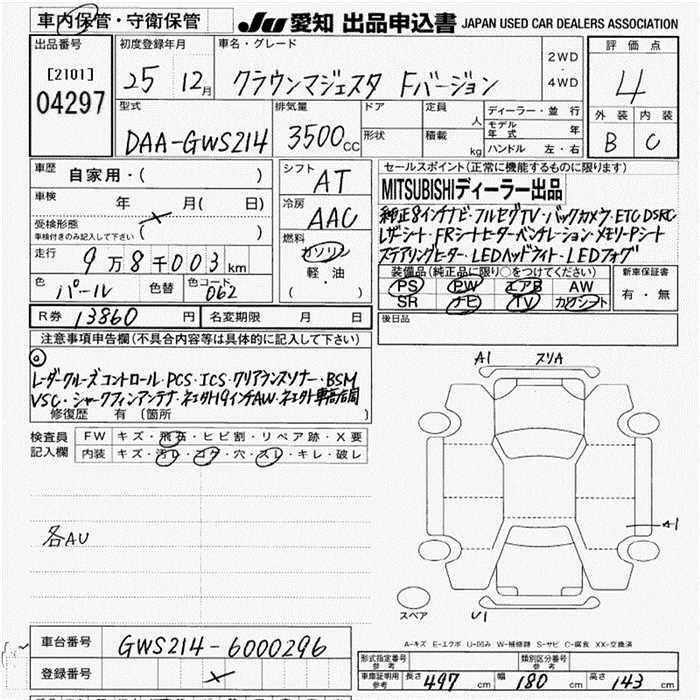 車内保管・守衛保管 JU 愛知 出品申込書 JAPAN USED CAR DEALERS ASSOCIATION
出品番号 初度登録年月 車名・グレード 評価点
[2101] 25 12月 クラウンマジェスタ Fバージョン 2WD ・ 4WD 4
04297
型式 排気量 ドア 定員 人 ディーラー・並行 外装 内装
DAA-GWS214 3500cc 形状 積載 kg モデル年式 年 B C
ハンドル 左・右
車歴 自家用・( ) シフト AT セールスポイント(正常に機能するものに限ります)
車検 年 月( 日) 冷房 AAC MITSUBISHIディーラー出品
受検形態 × 純正8インチナビ・フルセグTV・バックカメラ・ETC DSRC
車検付きのみ記入して下さい( ) 燃料 ガソリン レザーシート・FRシートヒーター・ベンチレーション・メモリーPシート
走行 9万8千003km 軽・油 ステアリングヒーター・LEDヘッドライト・LEDフォグ
色 パール 色替 色コード 062 ( ) 装備品(純正品に限り○をつけてください) 新車保証書
PS PW エアB AW 有・無
SR ナビ TV カワシート
R券 13860円 名変期限 月 日 後日品
注意事項申告欄(不具合内容等は具体的に記入して下さい)
レーダークルーズコントロール・PCS・ICS・クリアランスソナー・BSM
VSC・シャークフィンアンテナ・
修復歴 有 (箇所 )
A1 スリA
検査員記入欄 FW キズ・飛石・ヒビ割・リペア跡・X要
内装 キズ・汚レ・コゲ・穴・スレ・キレ・破レ
A1
各AU
スペア U1
A-キズ E-エクボ U-凹み W-補修跡 S-サビ C-腐食 XX-交換済
車台番号 GWS214-6000296
登録番号 ×
形式指定番号 参考 類別区分番号 参考
車庫証明用 参考 長さ 497cm 幅 180cm 高さ 143cm